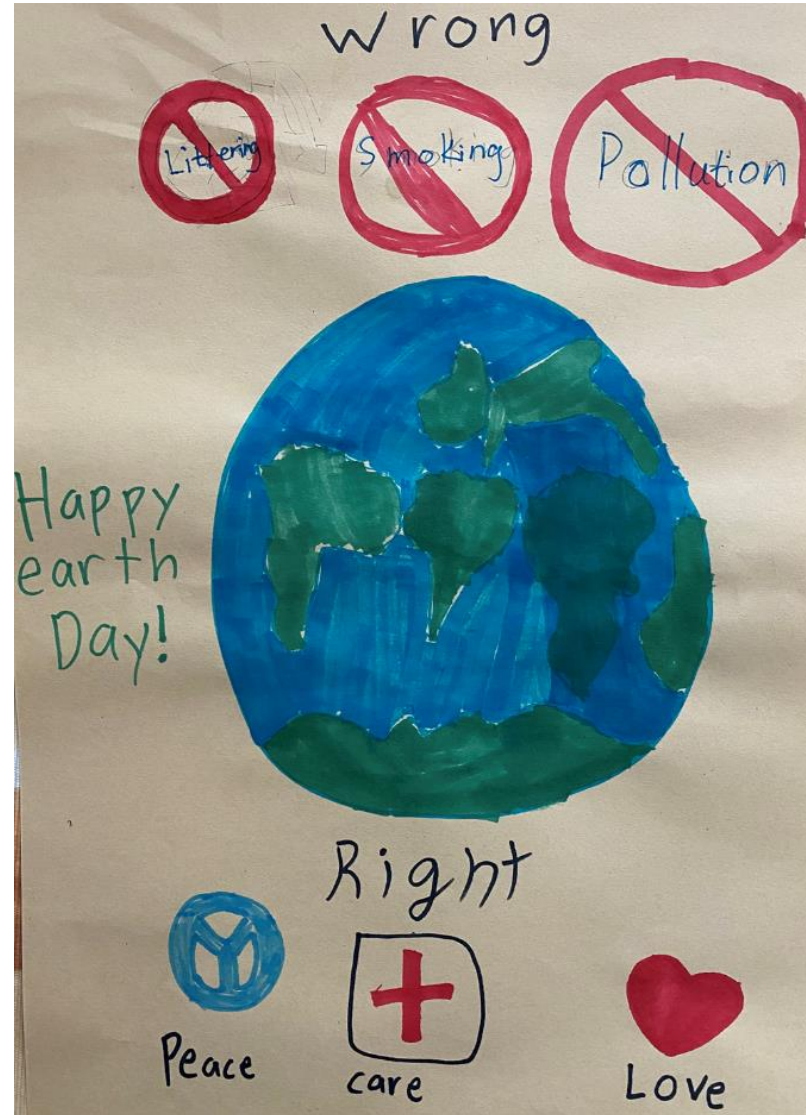 Wrong
Littering Smoking Pollution
Happy
earth
Day!
Right
Peace care Love